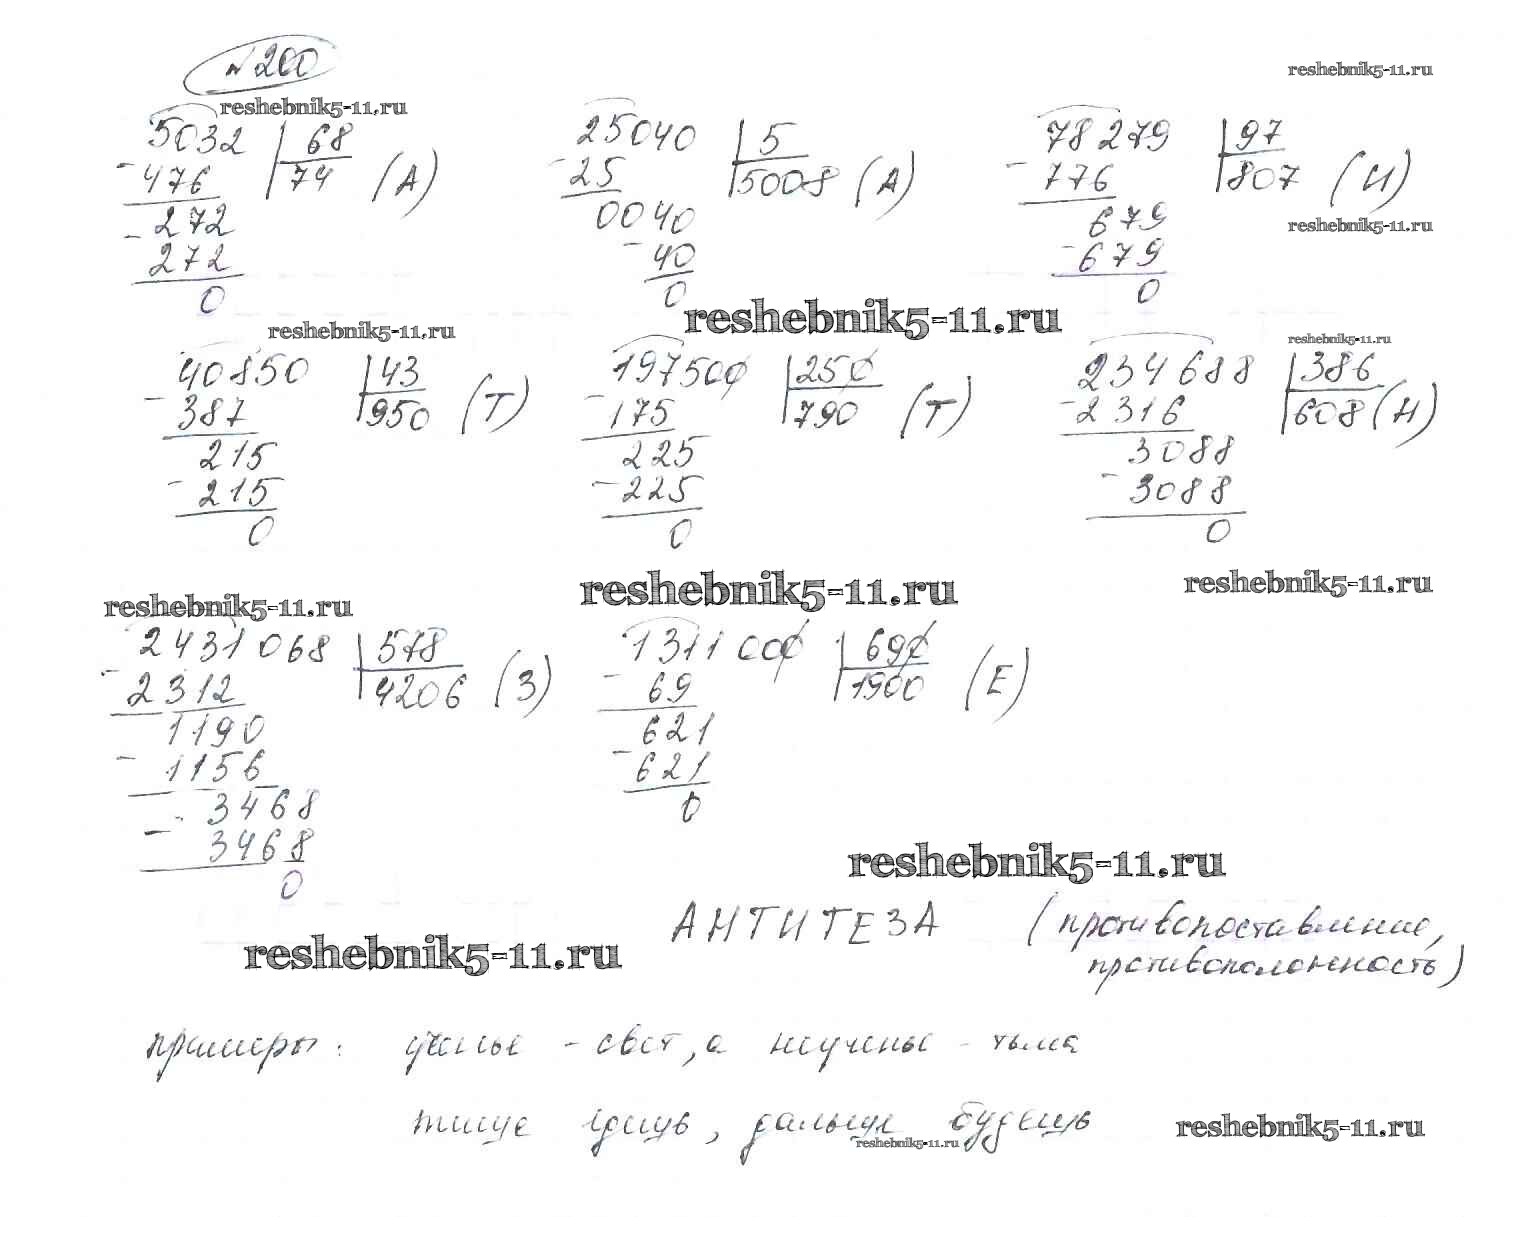 № 200
reshebnik5-11.ru
reshebnik5-11.ru
5032 | 68
- 476 | 74 (А)
- 272
272
0
25040 | 5
- 25 | 5008 (А)
0040
- 40
0
78279 | 97
- 776 | 807 (И)
679
- 679
0
reshebnik5-11.ru
reshebnik5-11.ru
reshebnik5-11.ru
reshebnik5-11.ru
40850 | 43
- 387 | 950 (Т)
215
- 215
0
197500 | 250
- 175 | 790 (Т)
225
- 225
0
234688 | 386
- 2316 | 608 (Н)
3088
- 3088
0
reshebnik5-11.ru
reshebnik5-11.ru
reshebnik5-11.ru
2431068 | 578
- 2312 | 4206 (З)
1190
- 1156
3468
- 3468
0
1311000 | 690
- 69 | 1900 (Е)
621
- 621
0
reshebnik5-11.ru
АНТИТЕЗА (противопоставление,
противоположность)
reshebnik5-11.ru
примеры: ученье - свет, а неученье - тьма
тише едешь, дальше будешь
reshebnik5-11.ru
reshebnik5-11.ru